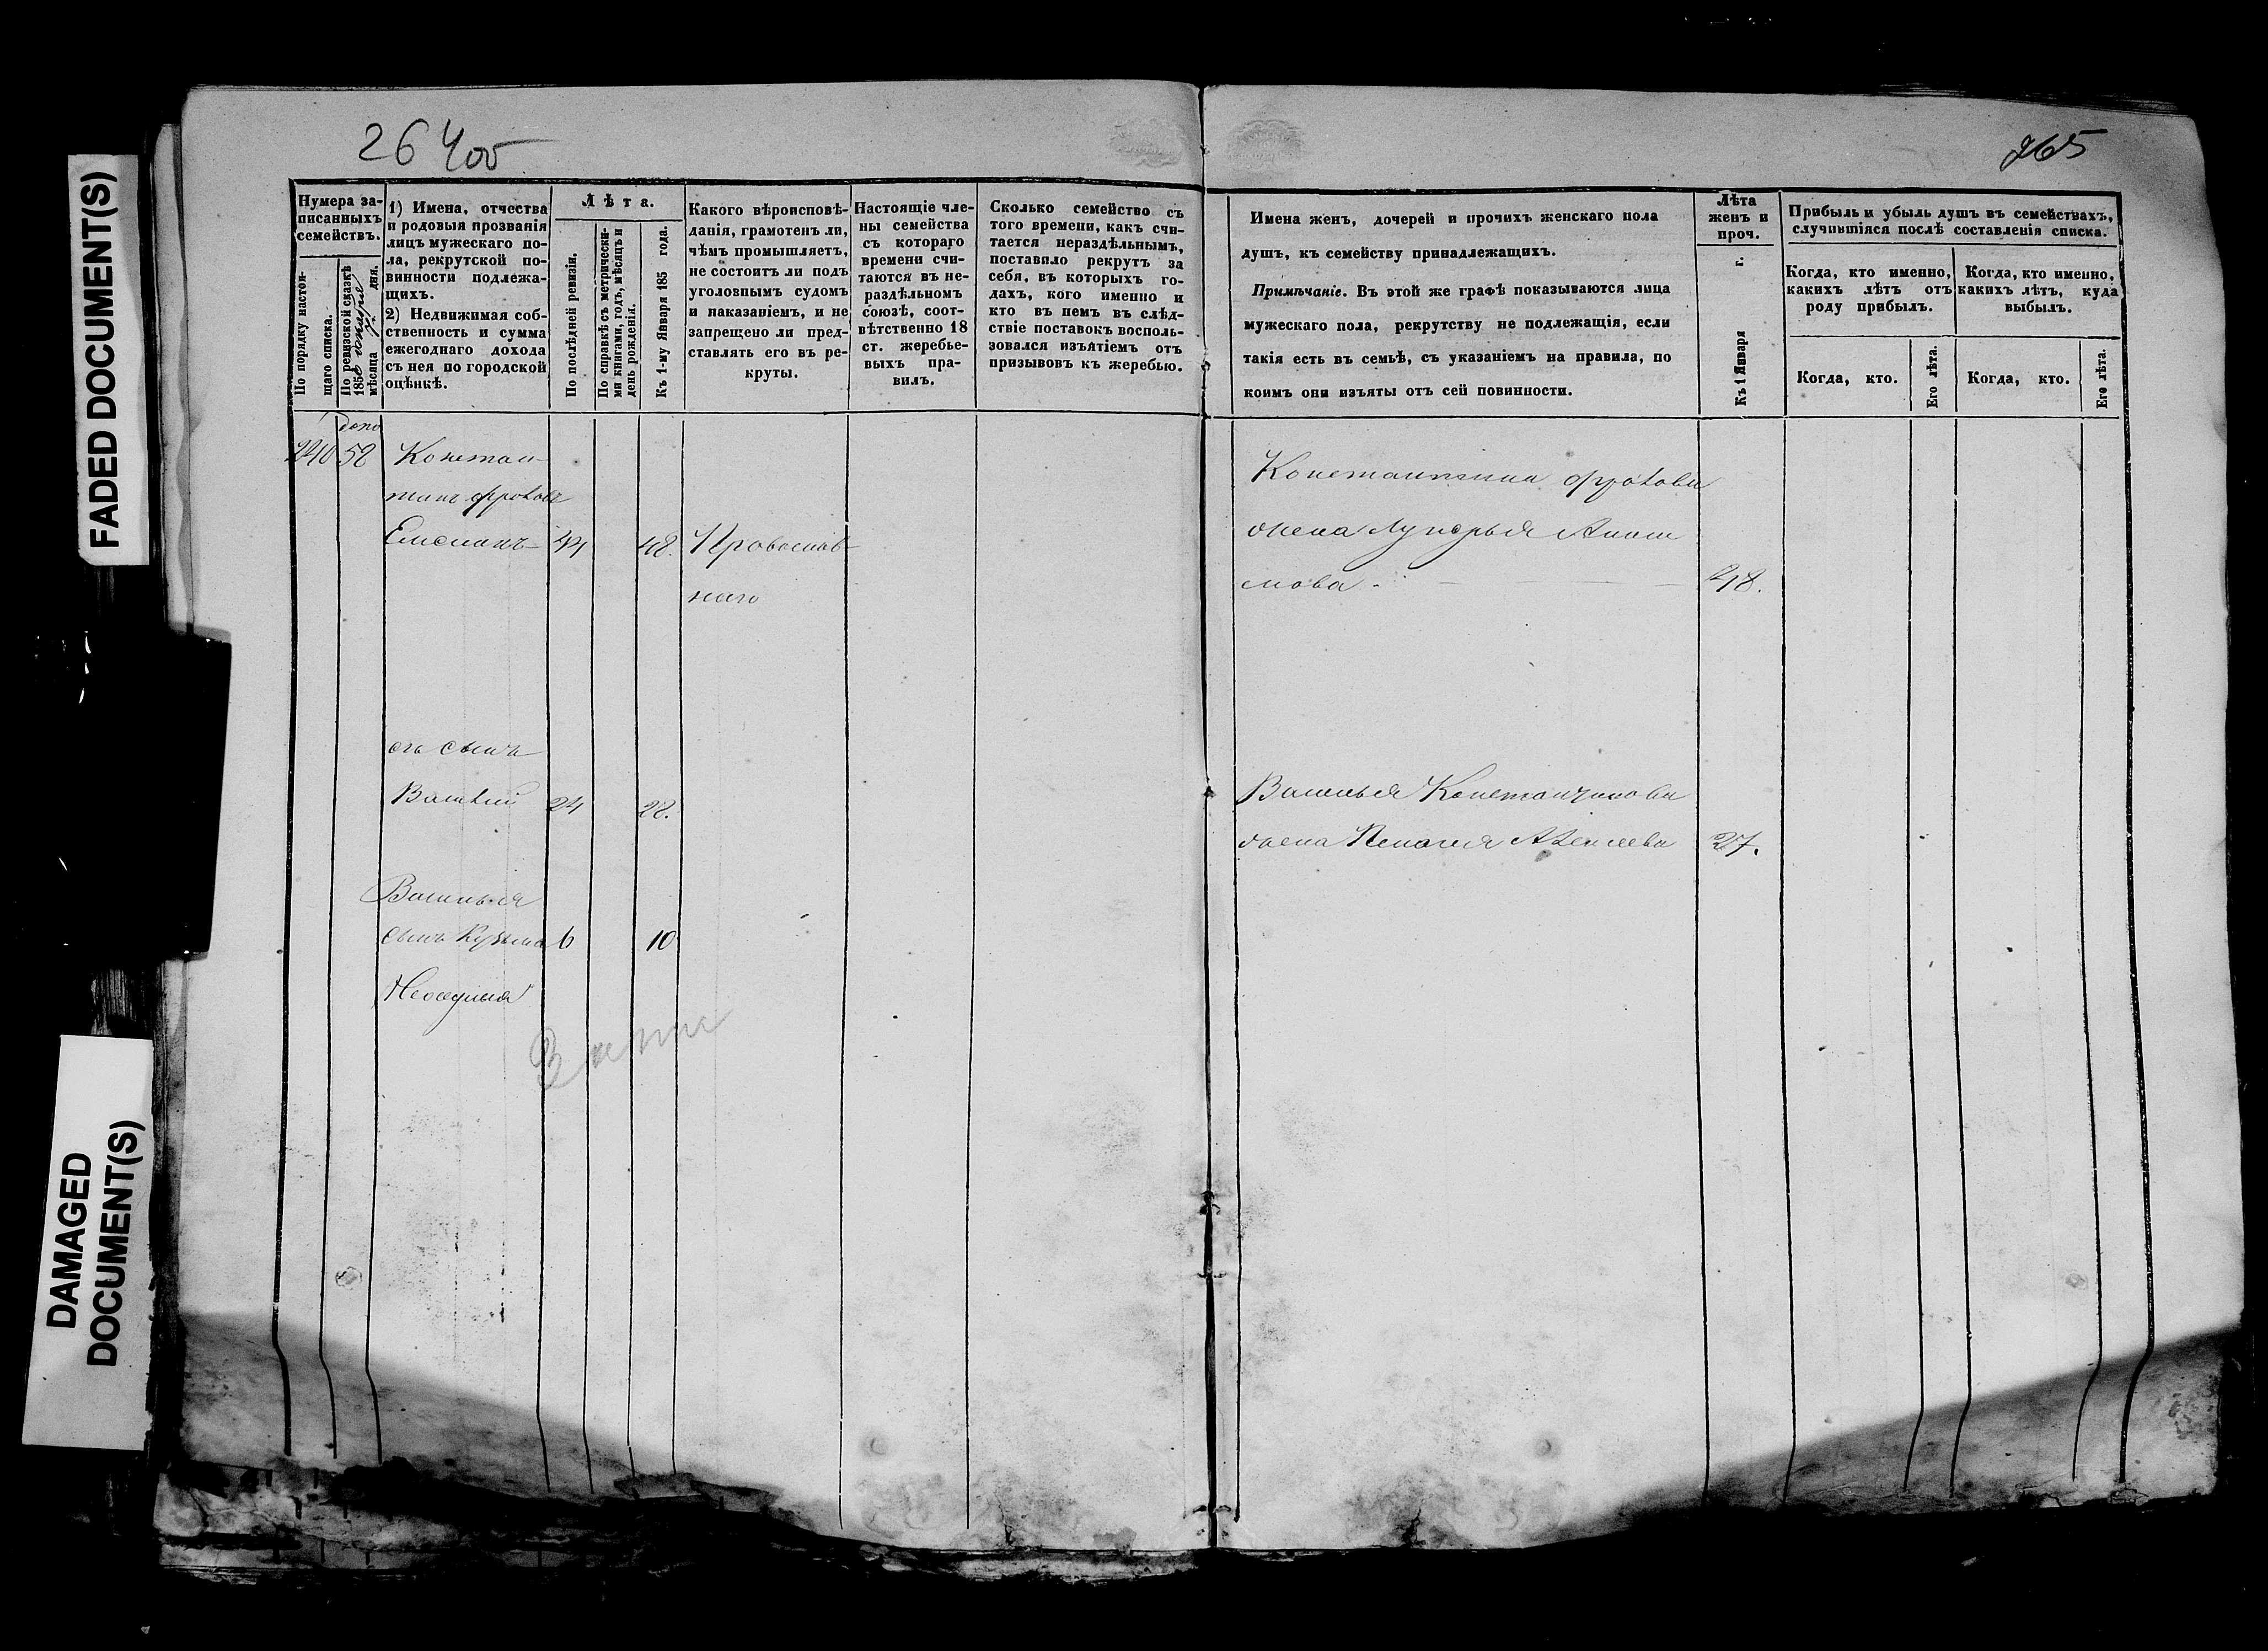 FADED DOCUMENT(S)
DAMAGED
DOCUMENT(S)
265
Нумера за-
писанныхъ
семействъ.
По порядку настоя-
щаго списка.
По ревизской сказкѣ
185
мѣсяца дня.
1) Имена, отчества
и родовыя прозванія
лицъ мужескаго по-
ла, рекрутской по-
винности подлежа-
щихъ.
2) Недвижимая соб-
ственность и сумма
ежегоднаго дохода
съ нея по городской
оцѣнкѣ.
Лѣта.
По послѣдней ревизіи.
По справкѣ съ метрически-
ми книгами, годъ, мѣсяцъ и
день рожденія.
Къ 1-му Января 185 года.
Какого вѣроисповѣ-
данія, грамотенъ ли,
чѣмъ промышляетъ,
не состоитъ ли подъ
уголовнымъ судомъ
и наказаніемъ, и не
запрещено ли пред-
ставлять его въ ре-
круты.
Настоящіе чле-
ны семейства
съ котораго
времени счи-
таются въ не-
раздѣльномъ
союзѣ, соот-
вѣтственно 18
ст. жеребье-
выхъ пра-
вилъ.
Сколько семейство съ
того времени, какъ счи-
тается нераздѣльнымъ,
поставило рекрутъ за
себя, въ которыхъ го-
дахъ, кого именно и
кто въ немъ въ слѣд-
ствіе поставокъ восполь-
зовался изъятіемъ отъ
призывовъ къ жеребью.
Имена женъ, дочерей и прочихъ женскаго пола
душъ, къ семейству принадлежащихъ.
Примѣчаніе. Въ этой же графѣ показываются лица
мужескаго пола, рекрутству не подлежащія, если
такія есть въ семьѣ, съ указаніемъ на правила, по
коимъ они изъяты отъ сей повинности.
Лѣта
женъ и
проч.
Къ 1 Января г.
Прибыль и убыль душъ въ семействахъ,
случившіяся послѣ составленія списка.
Когда, кто именно,
какихъ лѣтъ отъ
роду прибылъ.
Когда, кто именно,
какихъ лѣтъ, куда
выбылъ.
Когда, кто.
Его лѣта.
Когда, кто.
Его лѣта.
допо
240 52 Констан-
тинъ Фролов
44 48. Православ-
наго
его сынъ
Василій 24 28.
Василья
сынъ Кузьма 6 10
Константина Фролова
жена Лукерья
мова - 48.
Василья Константинова
жена Пелагея Алексеева 27.